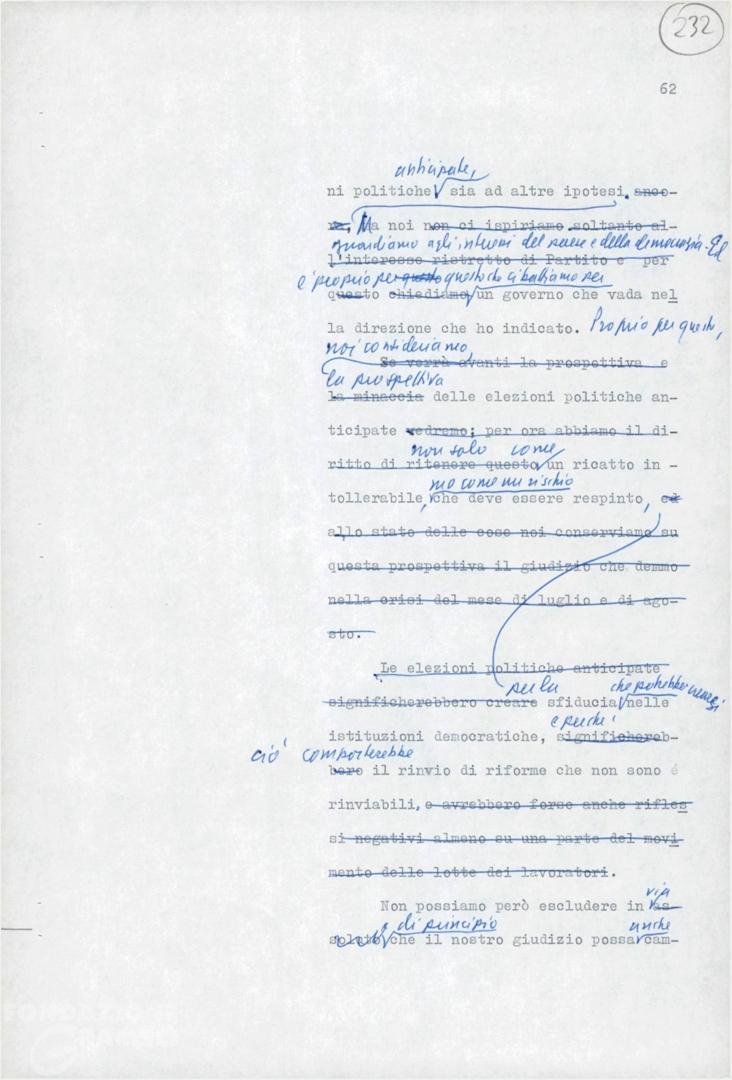 232
62
anticipate,
ni politiche sia ad altre ipotesi. anco-
ra, Ma noi non ci ispiriamo soltanto al-
guardiamo agli interessi del paese e della democrazia. Ed
l'interesse ristretto di Partito e per
è proprio per questo questo che ci battiamo per
questo chiediamo un governo che vada nel
la direzione che ho indicato. Proprio per questo,
noi consideriamo
Se verrà avanti la prospettiva e
la prospettiva
la minaccia delle elezioni politiche an-
ticipate vedremo; per ora abbiamo il di-
non solo come
ritto di ritenere questo un ricatto in -
ma come un rischio
tollerabile, che deve essere respinto, ed
allo stato delle cose noi conserviamo su
questa prospettiva il giudizio che demmo
nella crisi del mese di luglio e di ago-
sto.
Le elezioni politiche anticipate
per la che potrebbe crearsi
significherebbero creare sfiducia nelle
e perché
istituzioni democratiche, significhereb-
ciò comporterebbe
bero il rinvio di riforme che non sono é
rinviabili, e avrebbero forse anche rifles
si negativi almeno su una parte del movi
mento delle lotte dei lavoratori.
via
Non possiamo però escludere in as-
di principio anche
soluto che il nostro giudizio possa cam-
FONDAZIONE
GRAMSCI